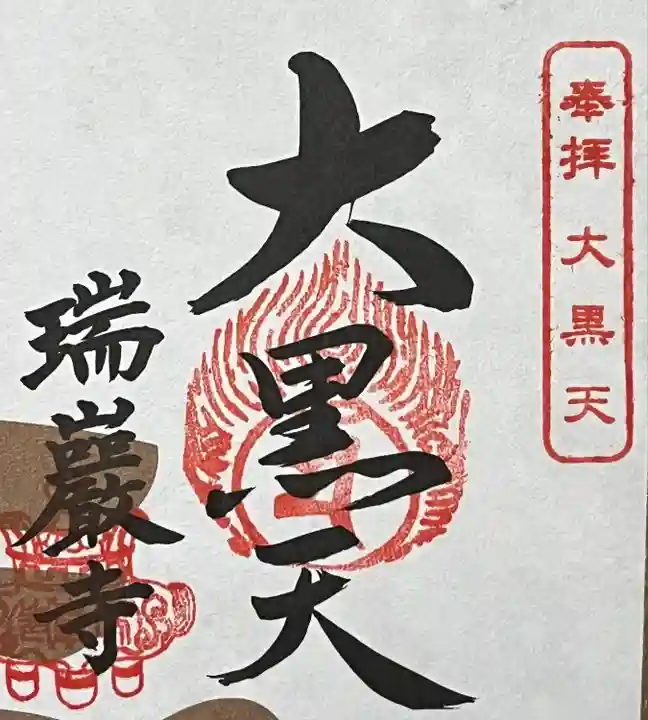 奉拝 大黒天
大黒天
瑞巌寺